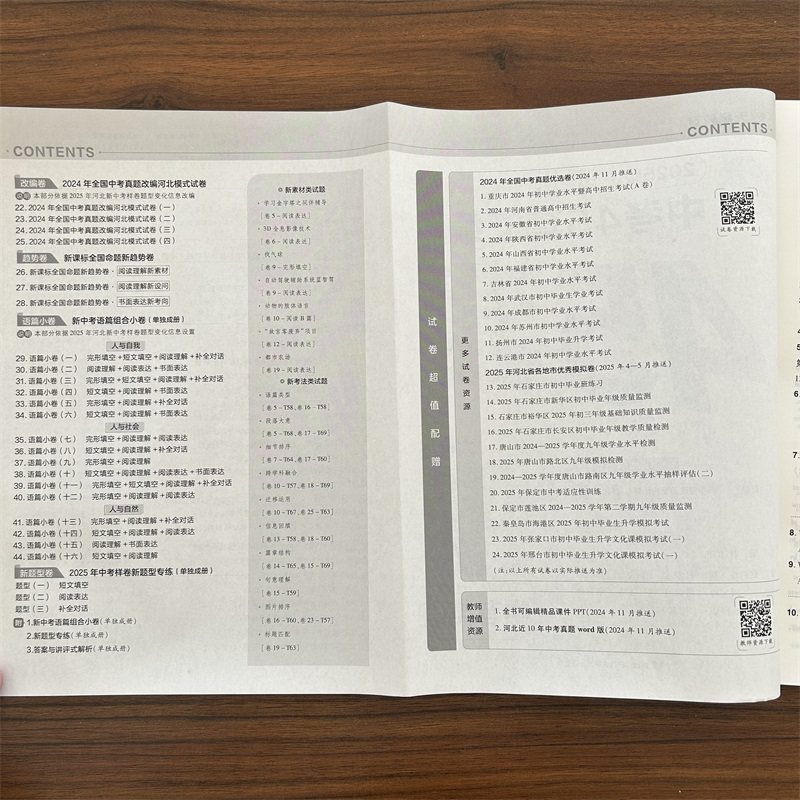 CONTENTS
改编卷 2024 年全国中考真题改编河北模式试卷
说明 本部分依据 2025 年河北新中考样卷题型变化信息改编
22. 2024 年全国中考真题改编河北模式试卷（一）
23. 2024 年全国中考真题改编河北模式试卷（二）
24. 2024 年全国中考真题改编河北模式试卷（三）
25. 2024 年全国中考真题改编河北模式试卷（四）
趋势卷 新课标全国命题新趋势卷
26. 新课标全国命题新趋势卷·阅读理解新素材
27. 新课标全国命题新趋势卷·阅读理解新设问
28. 新课标全国命题新趋势卷·书面表达新考向
语篇小卷 新中考语篇组合小卷（单独成册）
说明 本部分依据 2025 年河北新中考样卷题型变化信息设置
人与自我
29. 语篇小卷（一） 完形填空+短文填空+阅读理解+补全对话
30. 语篇小卷（二） 阅读理解+阅读表达+书面表达
31. 语篇小卷（三） 完形填空+短文填空+阅读理解+补全对话
32. 语篇小卷（四） 短文填空+阅读理解+书面表达
33. 语篇小卷（五） 完形填空+阅读理解+补全对话
34. 语篇小卷（六） 短文填空+阅读理解+书面表达
人与社会
35. 语篇小卷（七） 完形填空+阅读理解+阅读表达
36. 语篇小卷（八） 短文填空+阅读理解+补全对话
37. 语篇小卷（九） 完形填空+阅读理解
38. 语篇小卷（十） 短文填空+阅读理解+阅读表达+书面表达
39. 语篇小卷（十一） 完形填空+短文填空+阅读理解+补全对话
40. 语篇小卷（十二） 完形填空+阅读理解+阅读表达
人与自然
41. 语篇小卷（十三） 完形填空+阅读理解+补全对话
42. 语篇小卷（十四） 短文填空+阅读理解+阅读表达
43. 语篇小卷（十五） 阅读理解+书面表达
44. 语篇小卷（十六） 短文填空+阅读理解
新题型卷 2025 年中考样卷新题型专练（单独成册）
题型（一） 短文填空
题型（二） 阅读表达
题型（三） 补全对话
附 1.新中考语篇组合小卷（单独成册）
2.新题型专练（单独成册）
3.答案与讲评式解析（单独成册）
新素材类试题
· 学习金字塔之同伴辅导
[卷 5－阅读表达]
· 3D 全息影像技术
[卷 6－阅读表达]
· 伐气球
[卷 9－完形填空]
· 自动驾驶辅助系统蓝智驾
[卷 9－阅读表达]
· 动物的肢体语言
[卷 10－阅读 B 篇]
· “故宫零废弃”项目
[卷 12－阅读表达]
· 都市农语
[卷 19－阅读表达]
新考法类试题
· 语篇类型
[卷 5－T58,卷 16－T58]
· 段落大意
[卷 5－T68,卷 17－T69]
· 细节排序
[卷 7－T64,卷 17－T60]
· 跨学科融合
[卷 10－T57,卷 18－T69]
· 迁移运用
[卷 10－T67,卷 25－T63]
· 信息回顾
[卷 13－T58,卷 18－T60]
· 篇章结构
[卷 14－T65,卷 15－T69]
· 句意理解
[卷 15－T59]
· 图片排序
[卷 16－T60,卷 23－T57]
· 标题匹配
[卷 19－T63]
CONTENTS
试卷超值配赠
更多试卷资源
2024 年全国中考真题优选卷(2024 年 11 月推送)
1. 重庆市 2024 年初中学业水平暨高中招生考试(A 卷)
2. 2024 年河南省普通高中招生考试
3. 2024 年安徽省初中学业水平考试
4. 2024 年陕西省初中学业水平考试
5. 2024 年山西省初中学业水平考试
6. 2024 年福建省初中学业水平考试
7. 吉林省 2024 年初中学业水平考试
8. 2024 年武汉市初中毕业生学业考试
9. 2024 年成都市初中学业水平考试
10. 2024 年苏州市初中学业水平考试
11. 扬州市 2024 年初中毕业升学考试
12. 连云港市 2024 年初中学业水平考试
2025 年河北省各地市优秀模拟卷(2025 年 4—5 月推送)
13. 2025 年石家庄市初中毕业班练习
14. 2025 年石家庄市新华区初中毕业年级质量监测
15. 石家庄市裕华区 2025 年初三年级基础知识质量监测
16. 2025 年石家庄市长安区初中毕业年级教学质量检测
17. 唐山市 2024—2025 学年度九年级学业水平检测
18. 2025 年唐山市路北区九年级模拟检测
19. 2024—2025 学年度唐山市路南区九年级学业水平抽样评估(二)
20. 2025 年保定市中考适应性训练
21. 保定市莲池区 2024—2025 学年第二学期九年级质量监测
22. 秦皇岛市海港区 2025 年初中毕业生升学模拟考试
23. 2025 年张家口市初中毕业生升学文化课模拟考试(一)
24. 2025 年邢台市初中毕业生升学文化课模拟考试(一)
(注:以上所有试卷以实际推送为准)
试卷资源下载
教师增值资源
1. 全书可编辑精品课件 PPT(2024 年 11 月推送)
2. 河北近 10 年中考真题 word 版(2024 年 11 月推送)
教师资源下载